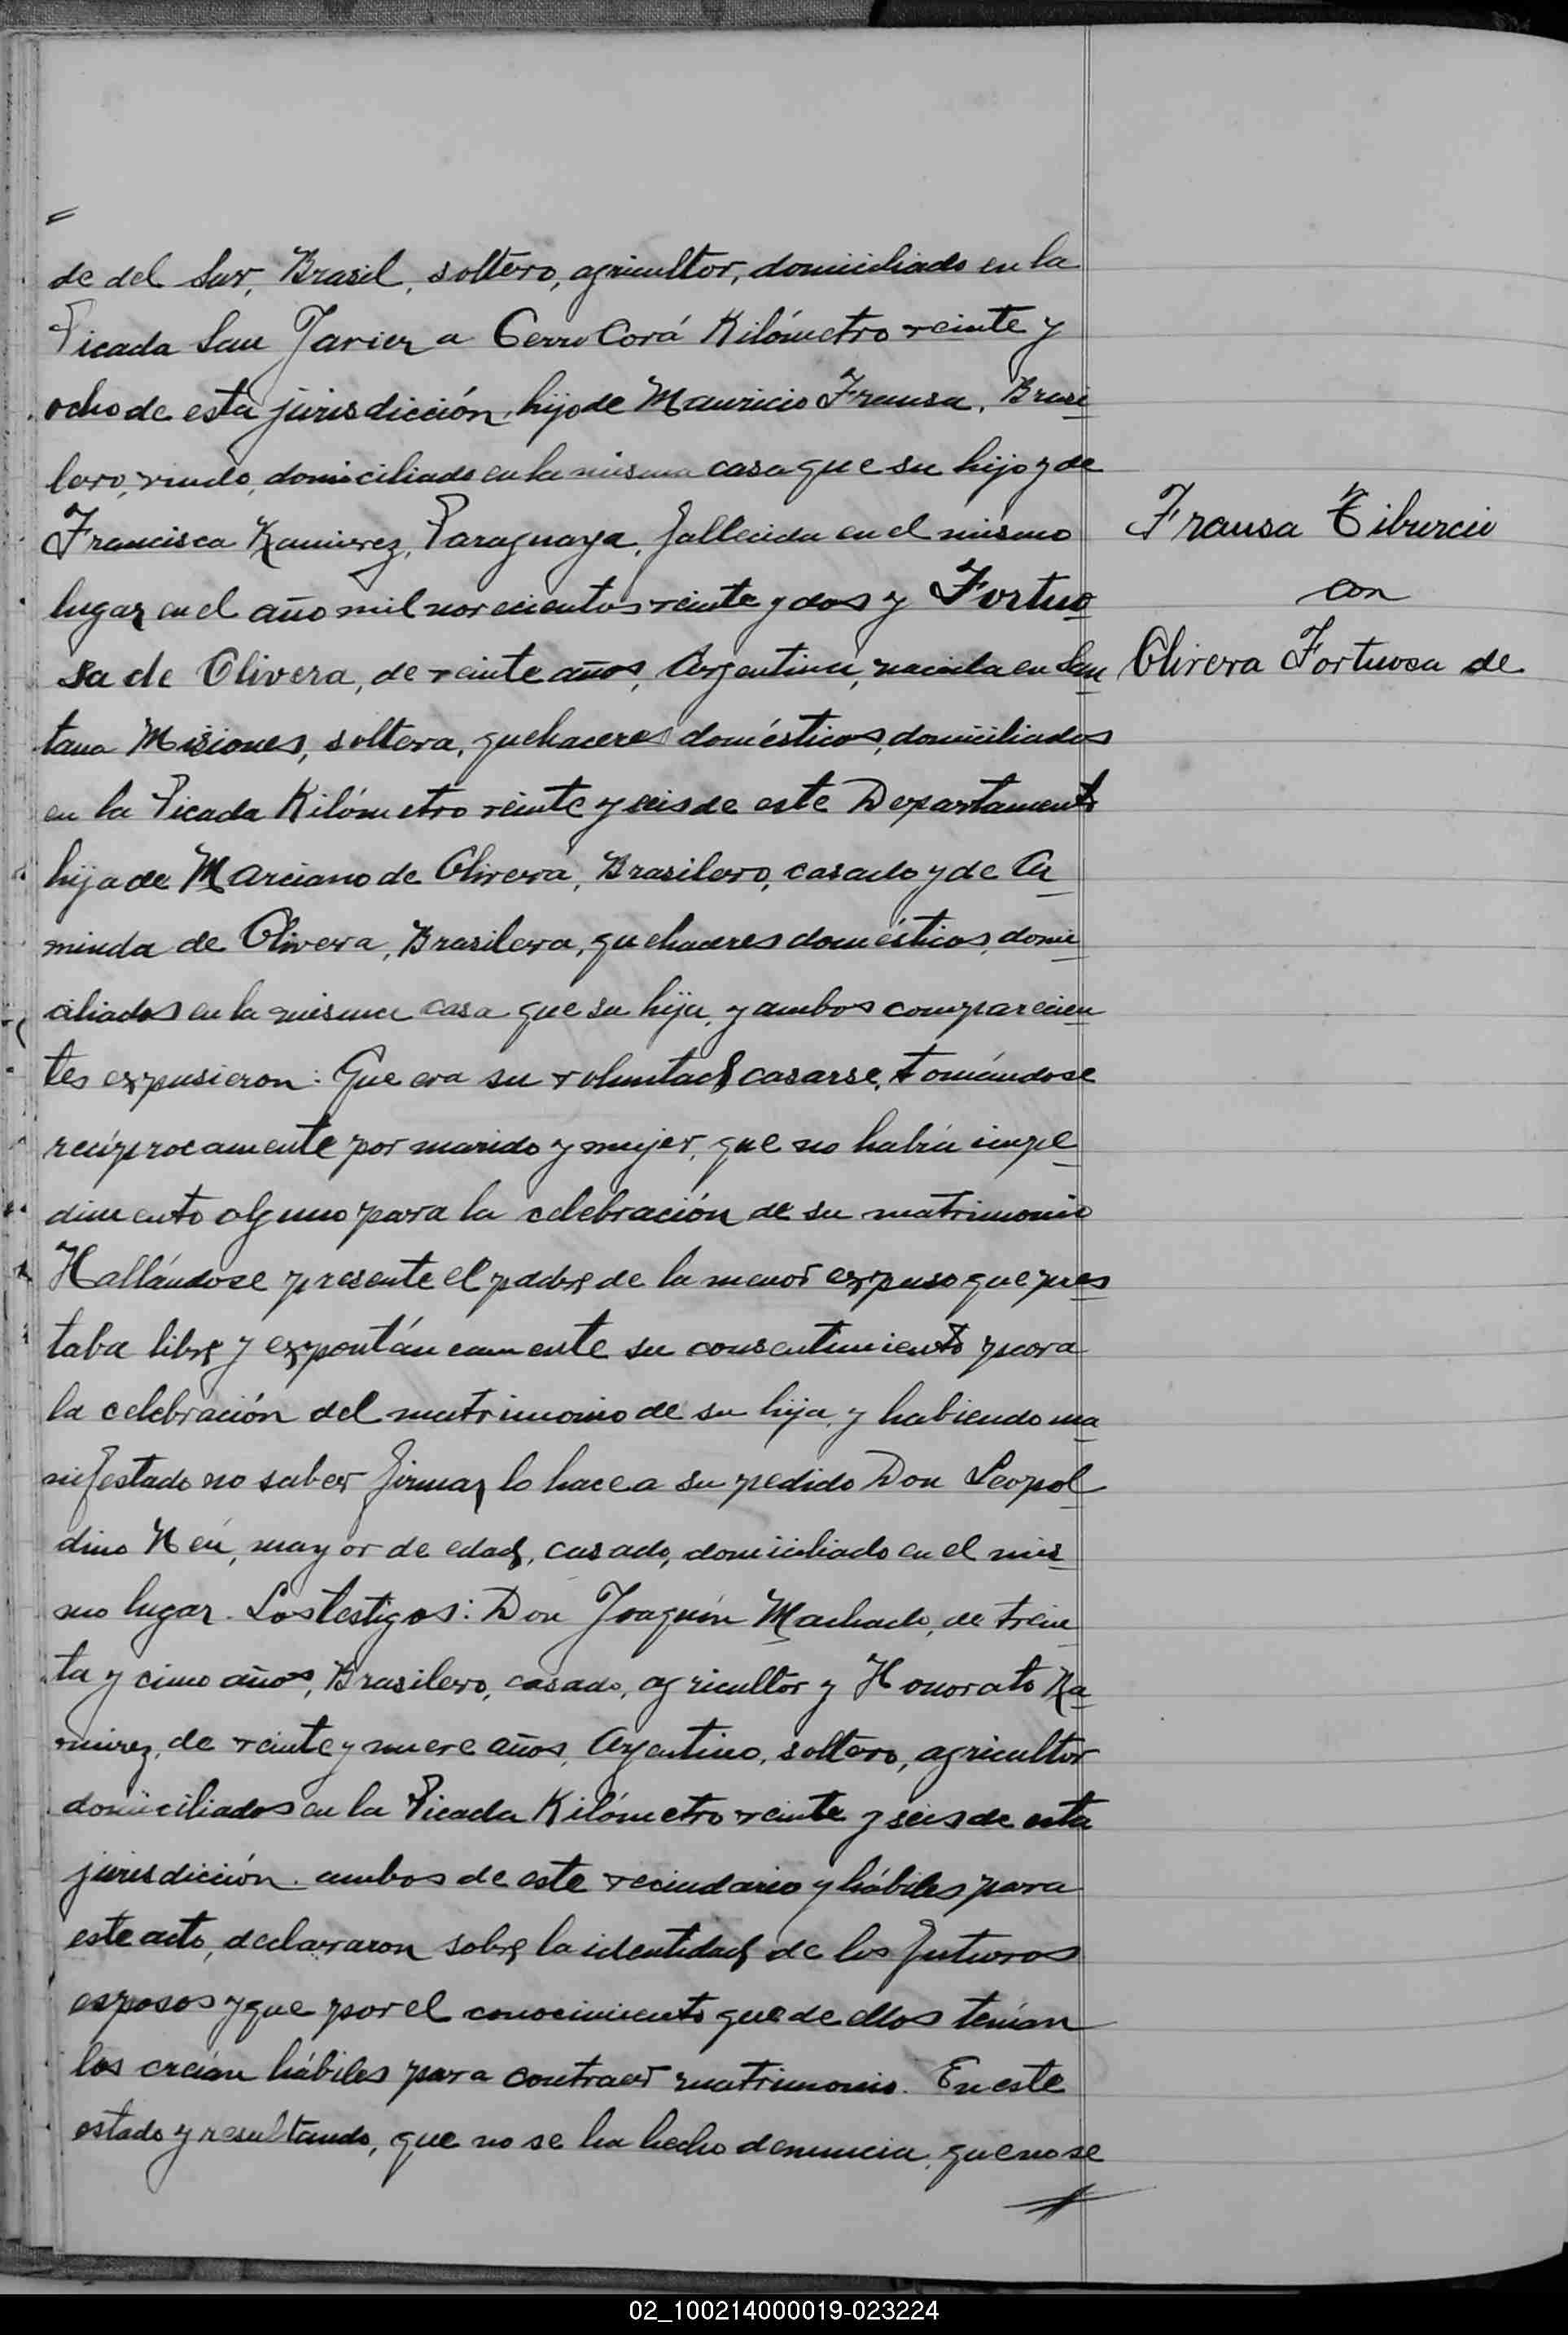 =
de del Sur, Brasil, soltero, agricultor, domiciliado en la
Picada San Javier a Cerro Corá Kilómetro veinte y
ocho de esta jurisdicción, hijo de Mauricio Fransa, Brasi
lero, viudo, domiciliado en la misma casa que su hijo y de
Francisca Ramirez, Paraguaya, fallecida en el mismo
lugar en el año mil novecientos veinte y dos y Fortuo
sa de Olivera, de veinte años, Argentina, nacida en San
tana Misiones, soltera, quehaceres domésticos, domiciliados
en la Picada Kilómetro veinte y seis de este Departamento
hija de Marciano de Olivera, Brasilero, casado y de Ar
minda de Olivera, Brasilera, quehaceres domésticos, domi
ciliados en la misma casa que su hija, y ambos comparecien
tes expusieron: Que era su voluntad casarse, tomándose
recíprocamente por marido y mujer, que no había impe
dimento alguno para la celebración de su matrimonio
Hallándose presente el padre de la menor expuso que pres
taba libre y expontáneamente su consentimiento para
la celebración del matrimonio de su hija, y habiendo ma
nifestado no saber firmar lo hace a su pedido Don Leopol
dino Neú, mayor de edad, casado, domiciliado en el mis
mo lugar. Los testigos: Don Joaquín Machado, de trein
ta y cinco años, Brasilero, casado, agricultor y Honorato Ra
mirez, de veinte y nueve años, Argentino, soltero, agricultor
domiciliados en la Picada Kilómetro veinte y seis de esta
jurisdicción. ambos de este vecindario y hábiles para
este acto, declararon sobre la identidad de los futuros
esposos y que por el conocimiento que de ellos tenían
los creían hábiles para contraer matrimonio. En este
estado y resultando, que no se ha hecho denuncia, que no se
Fransa Tiburcio
con
Olivera Fortuosa de
02_100214000019-023224